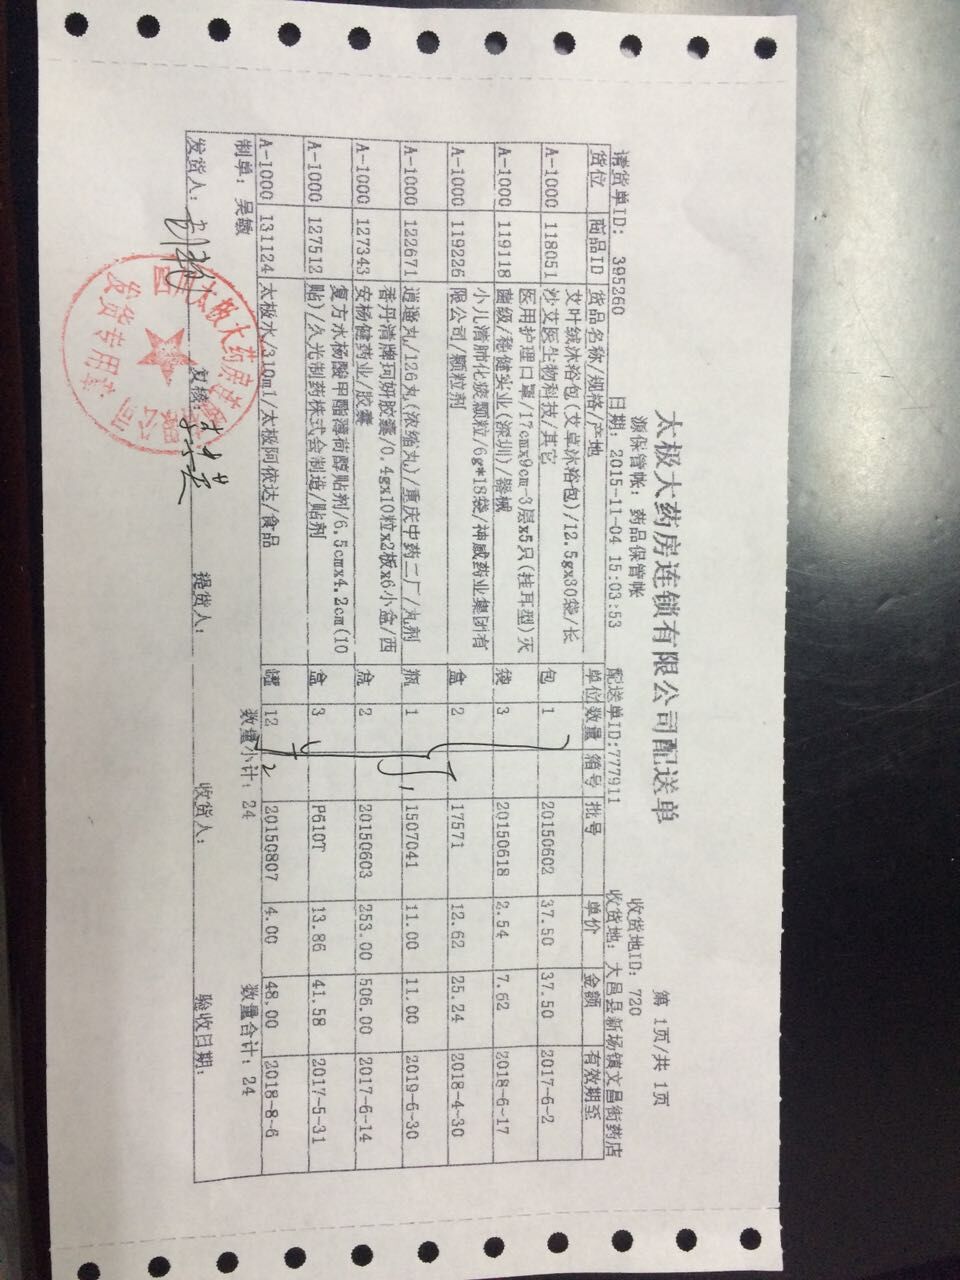 太极大药房连锁有限公司配送单
第 1页/共 1页
源保管帐: 药品保管帐
收货地ID: 720
请货单ID: 395260 日期: 2015-11-04 15:03:53 配送单ID:777911 收货地: 大邑县新场镇文昌街药店
货位 商品ID 货品名称/规格/产地 单位 数量 箱号 批号 单价 金额 有效期至
A-1000 118051 艾叶绒沐浴包(艾草沐浴包)/12.5gx30袋/长 包 1 20150602 37.50 37.50 2017-6-2
沙艾医生物科技/其它
A-1000 119118 医用护理口罩/17cmx9cm-3层x5只(挂耳型)灭 袋 3 20150618 2.54 7.62 2018-6-17
菌级/稳健实业(深圳)/器械
A-1000 119226 小儿清肺化痰颗粒/6g*18袋/神威药业集团有 盒 2 17571 12.62 25.24 2018-4-30
限公司/颗粒剂
A-1000 122671 逍遥丸/126丸(浓缩丸)/重庆中药二厂/丸剂 瓶 1 1507041 11.00 11.00 2019-6-30
A-1000 127343 香丹清牌珂妍胶囊/0.4gx10粒x2板x6小盒/西 盒 2 20150603 253.00 506.00 2017-6-14
安杨健药业/胶囊
A-1000 127512 复方水杨酸甲酯薄荷醇贴剂/6.5cmx4.2cm(10 盒 3 P610T 13.86 41.58 2017-5-31
贴)/久光制药株式会制造/贴剂
A-1000 131124 太极水/310ml/太极阿依达/食品 罐 12 20150807 4.00 48.00 2018-8-6
制单: 吴敏 数量小计: 24 数量合计: 24
发货人: 复核: 提货人: 收货人: 验收日期:
太极大药房连锁
公司
发货专用章